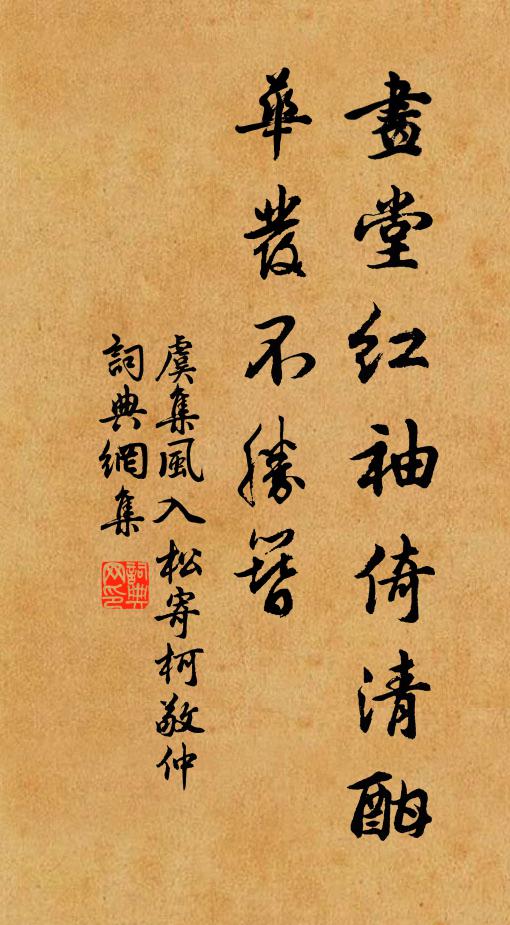 畫堂紅袖倚清酣
華發不勝簪
虞集風入松寄柯敬仲
詞典網集
詞典网印